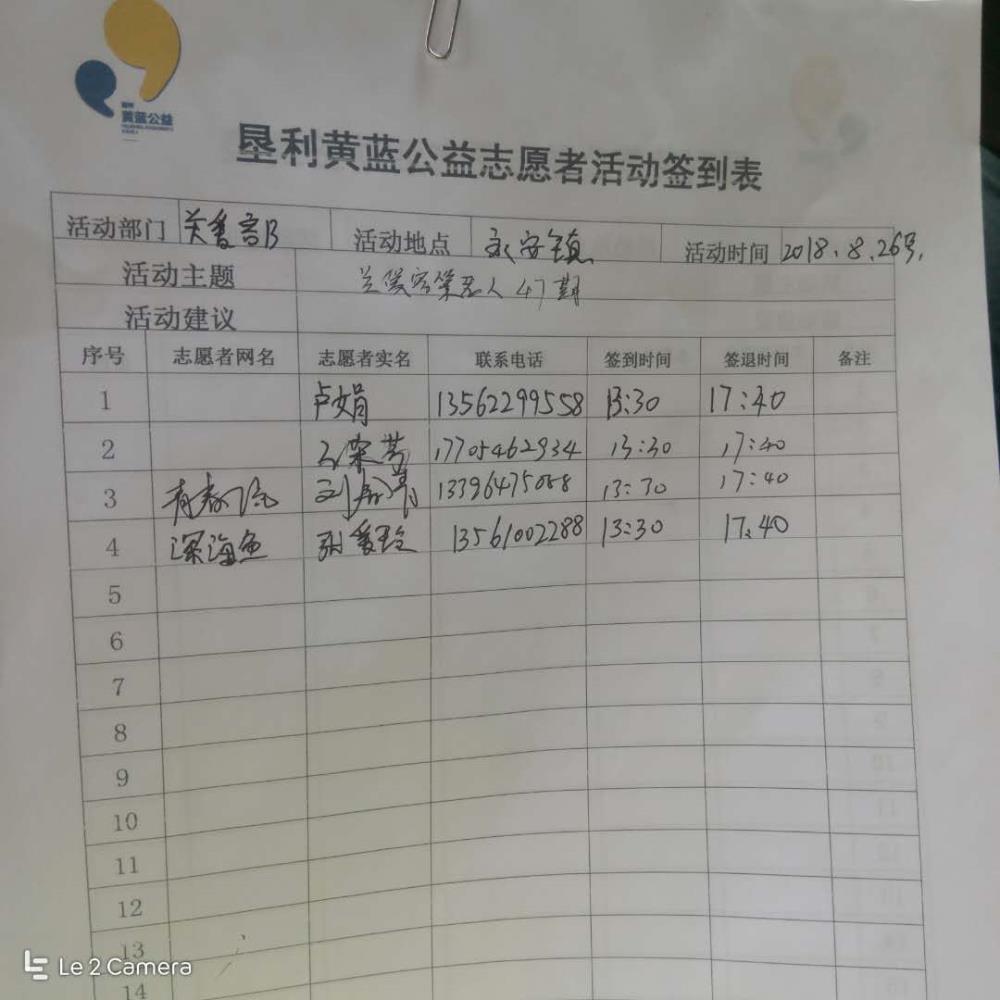 黄蓝公益
垦利黄蓝公益志愿者活动签到表
活动部门 关爱部 活动地点 永安镇 活动时间 2018.8.26号.
活动主题 47期
活动建议
序号 志愿者网名 志愿者实名 联系电话 签到时间 签退时间 备注
1 卢娟 13562299558 13:30 17:40
2 荣芳 17705462934 13:30 17:40
3 青春 刘 13396475058 13:30 17:40
4 深海鱼 张爱玲 13561002288 13:30 17:40
5
6
7
8
9
10
11
12
13
14
Le 2 Camera